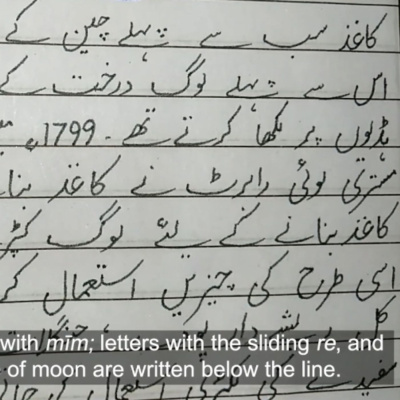 کاغذ سب سے پہلے چین کے
اس سے پہلے لوگ درخت کے
ہڈیوں پر لکھا کرتے تھے ۔ 1799ء
مستری لوئی رابرٹ نے کاغذ بنا
کاغذ بنانے کے لئے لوگ کپڑ
اسی طرح کی چیزیں استعمال کر
with mīm; letters with the sliding re, and
of moon are written below the line.
کی لکڑی استعمال کی جا